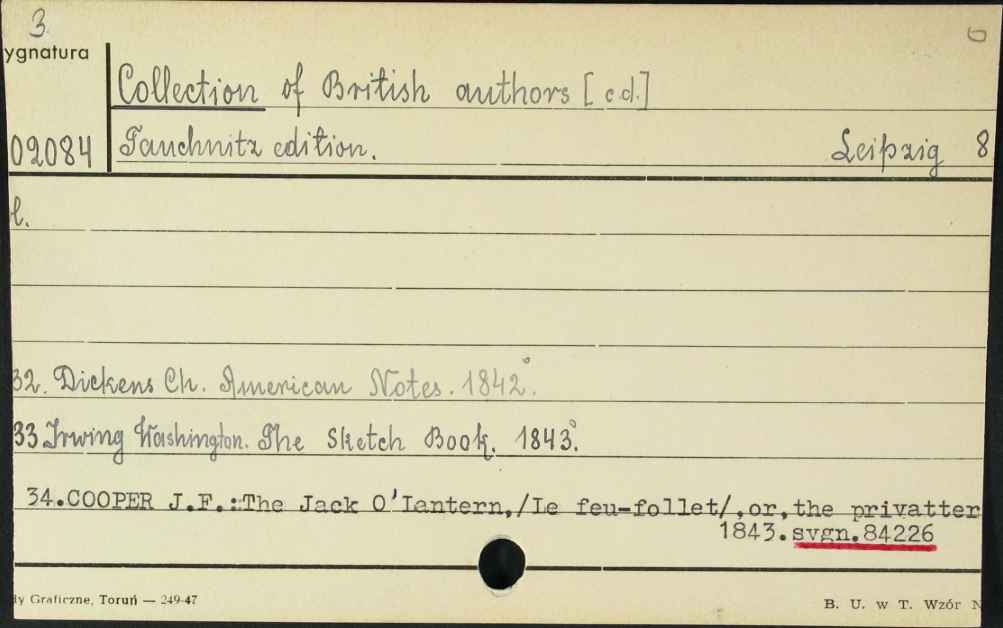 3
6
ygnatura
Collection of British authors [c.d.]
02084 Tauchnitz edition. Leipzig 8
l.
32. Dickens Ch. American Notes. 1842°.
33 Irwing Washington. The Sketch Book. 1843°.
34.COOPER J.F.:The Jack O'Lantern,/Le feu-follet/,or,the privatter
1843.sygn.84226
dy Graficzne, Toruń — 249-47
B. U. w T. Wzór N